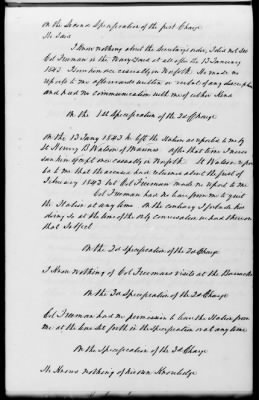 On the Second Specification of the first Charge
He Says
I know nothing about the Secretary's order, I did not see
Col Freeman in the Navy Yard at all after the 13 January
1843. I saw him once casually in Norfolk. He made no
report to me afterwards written or verbal of any description
and had no communication with me of either kind
On the 1st Specification of the 2d Charge
On the 13 Jany 1843 he left the Station as reported to me by
Lt Henry B Watson of Marines after that time I never
saw him except once casually in Norfolk. Lt Watson reported
to me that the accused had returned about the first of
February 1843 but Col Freeman made no report to me
Col Freeman had no leave from me to quit
the Station at any time On the contrary I forbade his
doing so at the time of the only conversation we had thereon
that
On the 2d Specification of the 2d Charge
I know nothing of Col Freemans visits at the Barracks
On the 3d Specification of the 2d Charge
Col Freeman had no permission to leave the Station from
me at the time set forth in the specification or at any time
On the Specification of the 3d Charge
He Knows nothing of his own Knowledge